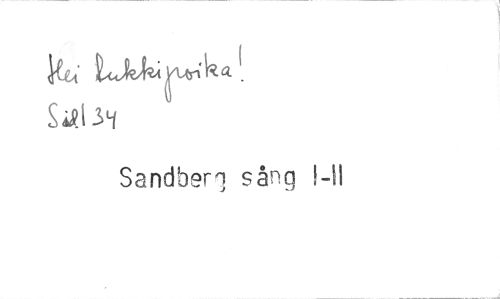 Hei Lukkipoika!
Sid 134
Sandberg sång I-II